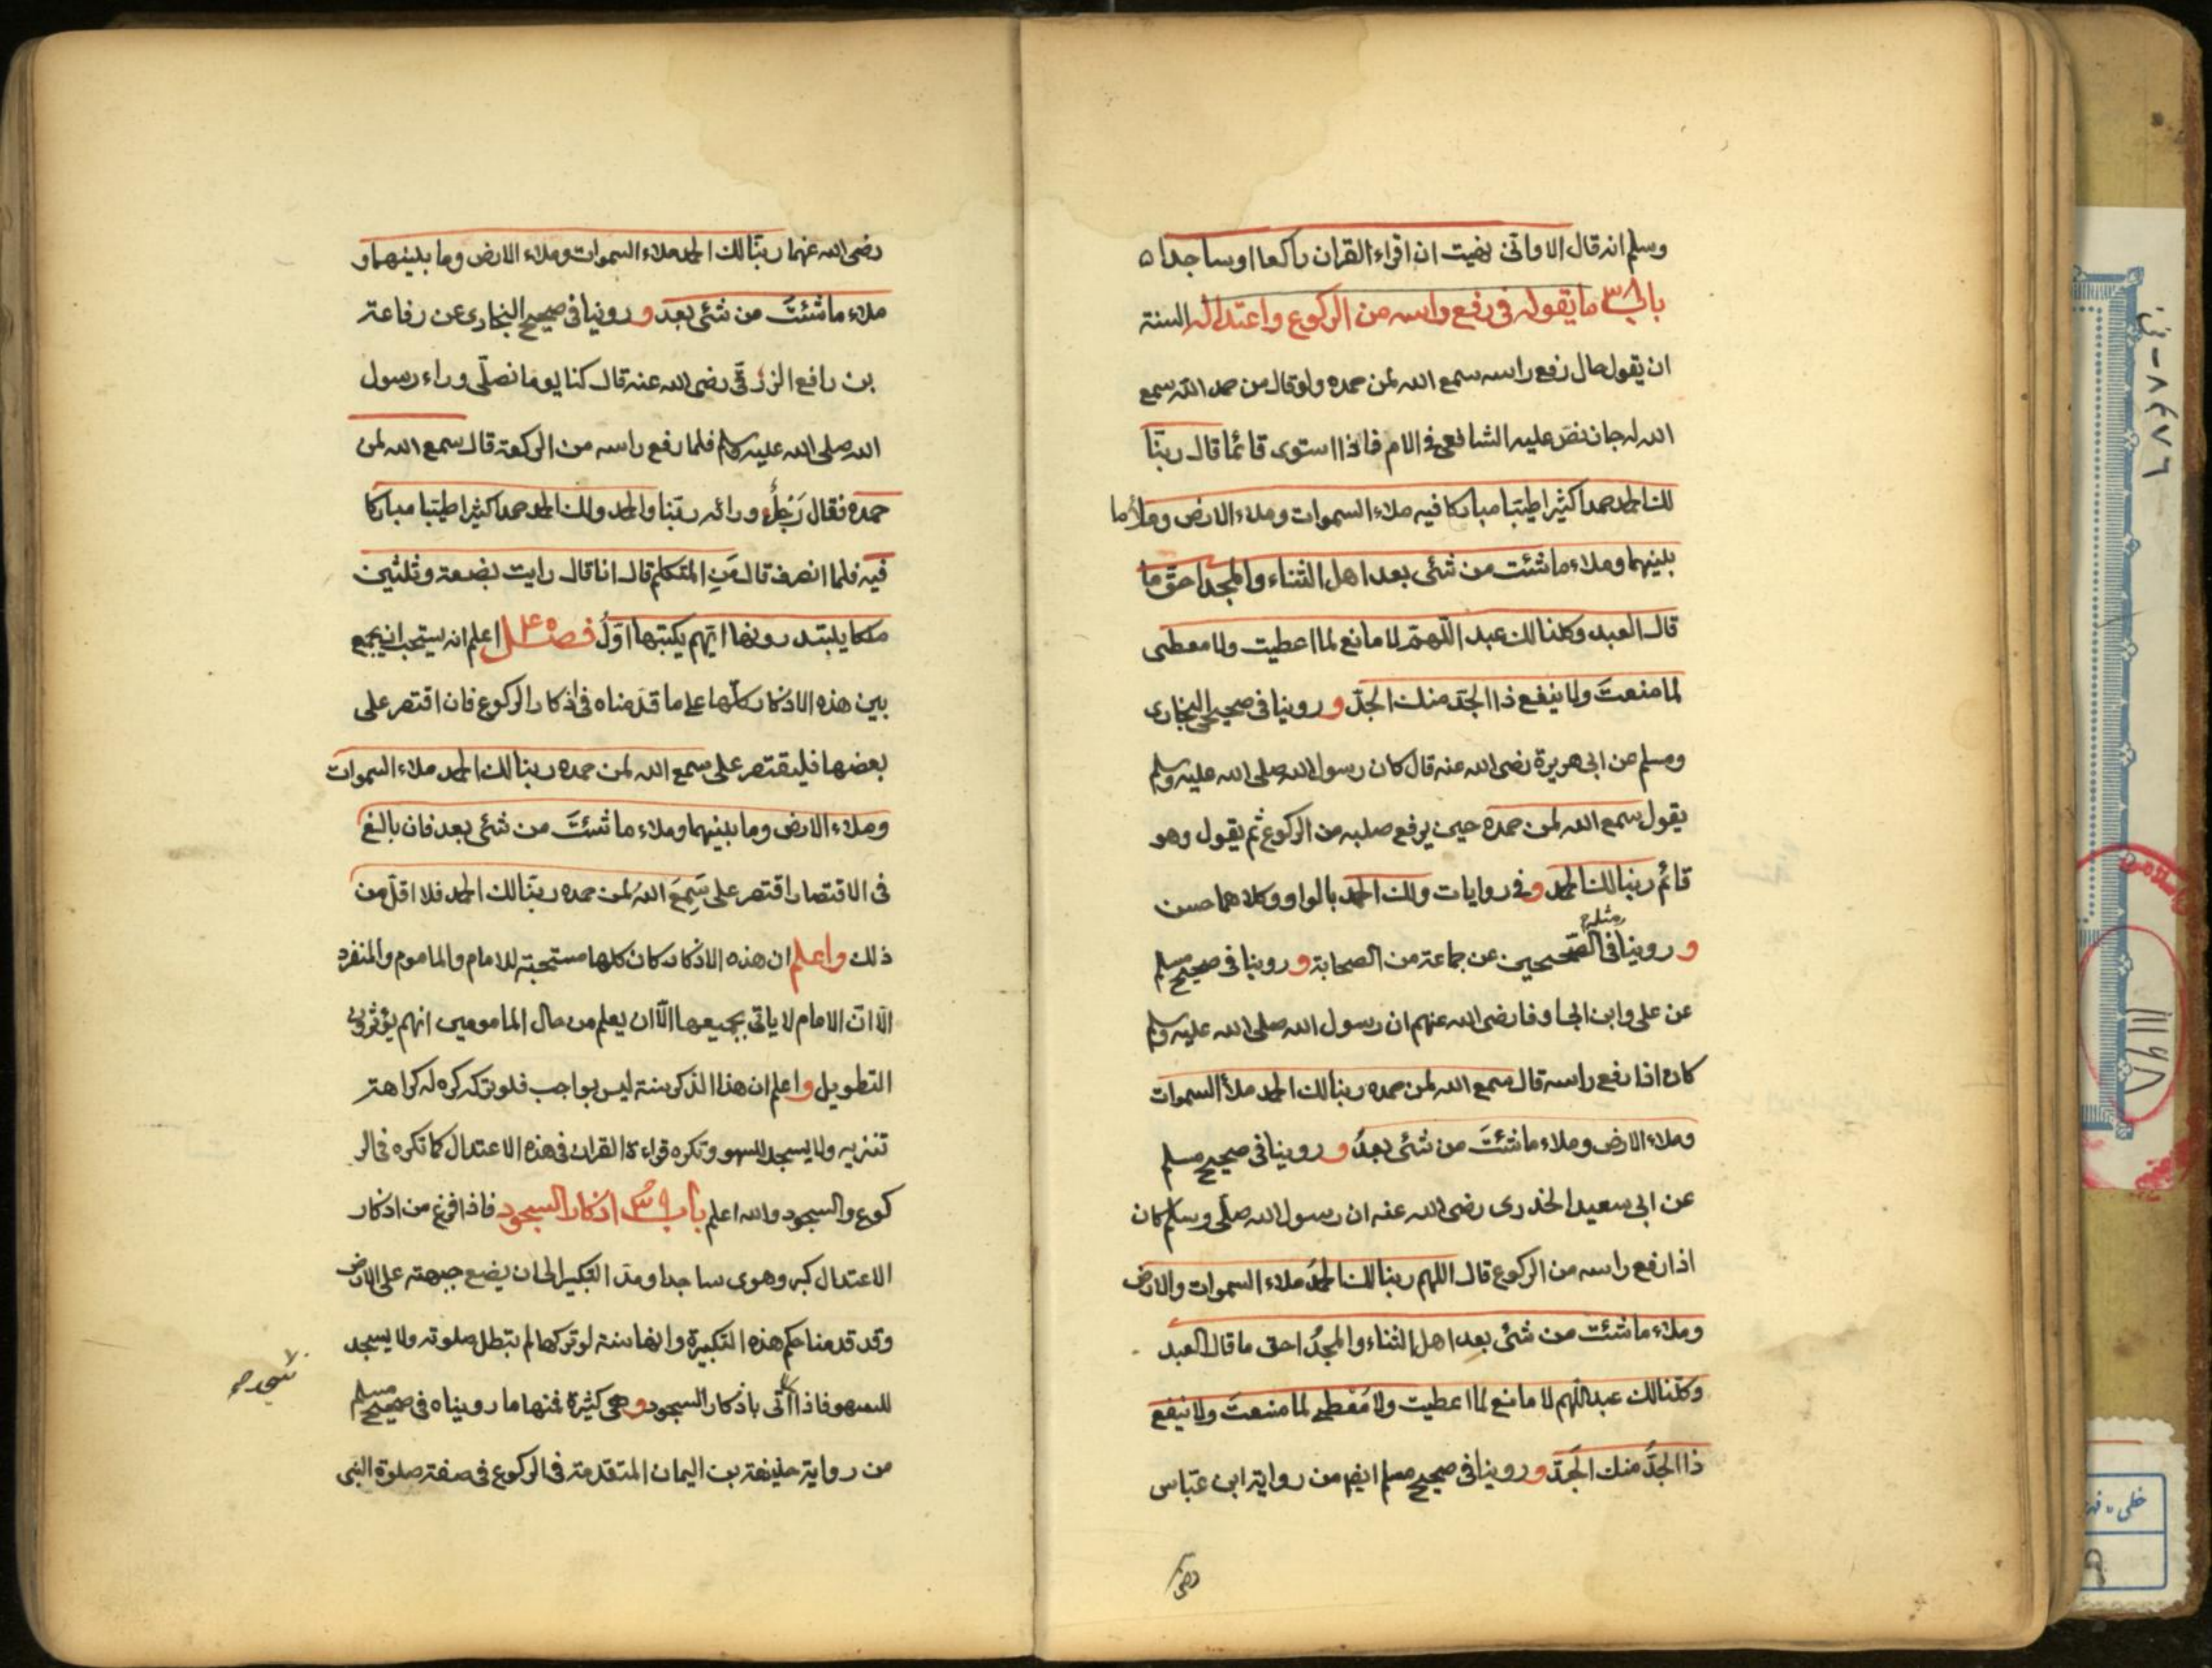 وسلم انه قال الا واني نهيت ان اقراء القران راكعا او ساجدا ه
باب ما يقوله في رفع راسه من الركوع واعتداله السنة
ان يقول حال رفع راسه سمع الله لمن حمده ولو قال من حمد الله سمع
الله له جاز نص عليه الشافعي في الام فاذا استوى قائما قال ربنا
لك الحمد حمدا كثيرا طيبا مباركا فيه ملاء السموات وملاء الارض وملأ ما
بينهما وملاء ما شئت من شئ بعد اهل الثناء والمجد احق ما
قال العبد وكلنا لك عبد اللهم لا مانع لما اعطيت ولا معطى
لما منعت ولا ينفع ذا الجد منك الجد وروينا في صحيحي البخاري
ومسلم عن ابي هريرة رضى الله عنه قال كان رسول الله صلى الله عليه وسلم
يقول سمع الله لمن حمده حين يرفع صلبه من الركوع ثم يقول وهو
قائم ربنا لك الحمد وفي روايات ولك الحمد بالواو وكلاهما حسن
وروينا مثله في الصحيحين عن جماعة من الصحابة وروينا في صحيح مسلم
عن على وابن ابي اوفا رضى الله عنهم ان رسول الله صلى الله عليه وسلم
كان اذا رفع راسه قال سمع الله لمن حمده ربنا لك الحمد ملأ السموات
وملاء الارض وملاء ما شئت من شئ بعد وروينا في صحيح مسلم
عن ابي سعيد الخدرى رضى الله عنه ان رسول الله صلى وسلم كان
اذا رفع راسه من الركوع قال اللهم ربنا لك الحمد ملاء السموات والارض
وملاء ما شئت من شئ بعد اهل الثناء والمجد احق ما قال العبد
وكلنا لك عبد اللهم لا مانع لما اعطيت ولا معطي لما منعت ولا ينفع
ذا الجد منك الجد وروينا في صحيح مسلم ايضا من رواية ابن عباس
رضى
رضى الله عنهما ربنا لك الحمد ملاء السموات وملاء الارض وما بينهما و
ملاء ما شئت من شئ بعد وروينا في صحيح البخارى عن رفاعة
بن رافع الزرقى رضى الله عنه قال كنا يوما نصلى وراء رسول
الله صلى الله عليه وسلم فلما رفع راسه من الركعة قال سمع الله لمن
حمده فقال رجل ورائه ربنا والحمد ولك الحمد حمدا كثيرا طيبا مباركا
فيه فلما انصرف قال من المتكلم قال انا قال رايت بضعة وثلثين
ملكا يبتدرونها ايهم يكتبها اول فصل اعلم انه يستحب ان يجمع
بين هذه الاذكار كلها على ما قدمناه في اذكار الركوع فان اقتصر على
بعضها فليقتصر على سمع الله لمن حمده ربنا لك الحمد ملاء السموات
وملاء الارض وما بينهما وملاء ما شئت من شئ بعد فان بالغ
في الاقتصار اقتصر على سمع الله لمن حمده ربنا لك الحمد فلا اقل من
ذلك واعلم ان هذه الاذكار كان كلها مستحبة للامام والماموم والمنفرد
الا ان الامام لا ياتي بجميعها الا ان يعلم من حال المامومين انهم يؤثرون
التطويل واعلم ان هذا الذكر سنة ليس بواجب فلو تركه كره له كراهة
تنزيه ولا يسجد للسهو وتكره قراءة القران في هذه الاعتدال كما تكره في الر
كوع والسجود والله اعلم باب اذكار السجود فاذا فرغ من اذكار
الاعتدال كبر وهوى ساجدا ومد التكبير الى ان يضع جبهته على الارض
وقد قدمنا حكم هذه التكبيرة وانها سنة لو تركها لم تبطل صلوته ولا يسجد
للسهو فاذا اتى باذكار السجود وهي كثيرة فمنها ما رويناه في صحيح مسلم
من رواية حذيفة بن اليمان المتقدمة في الركوع في صفة صلوة النبى
٨٤٧٦